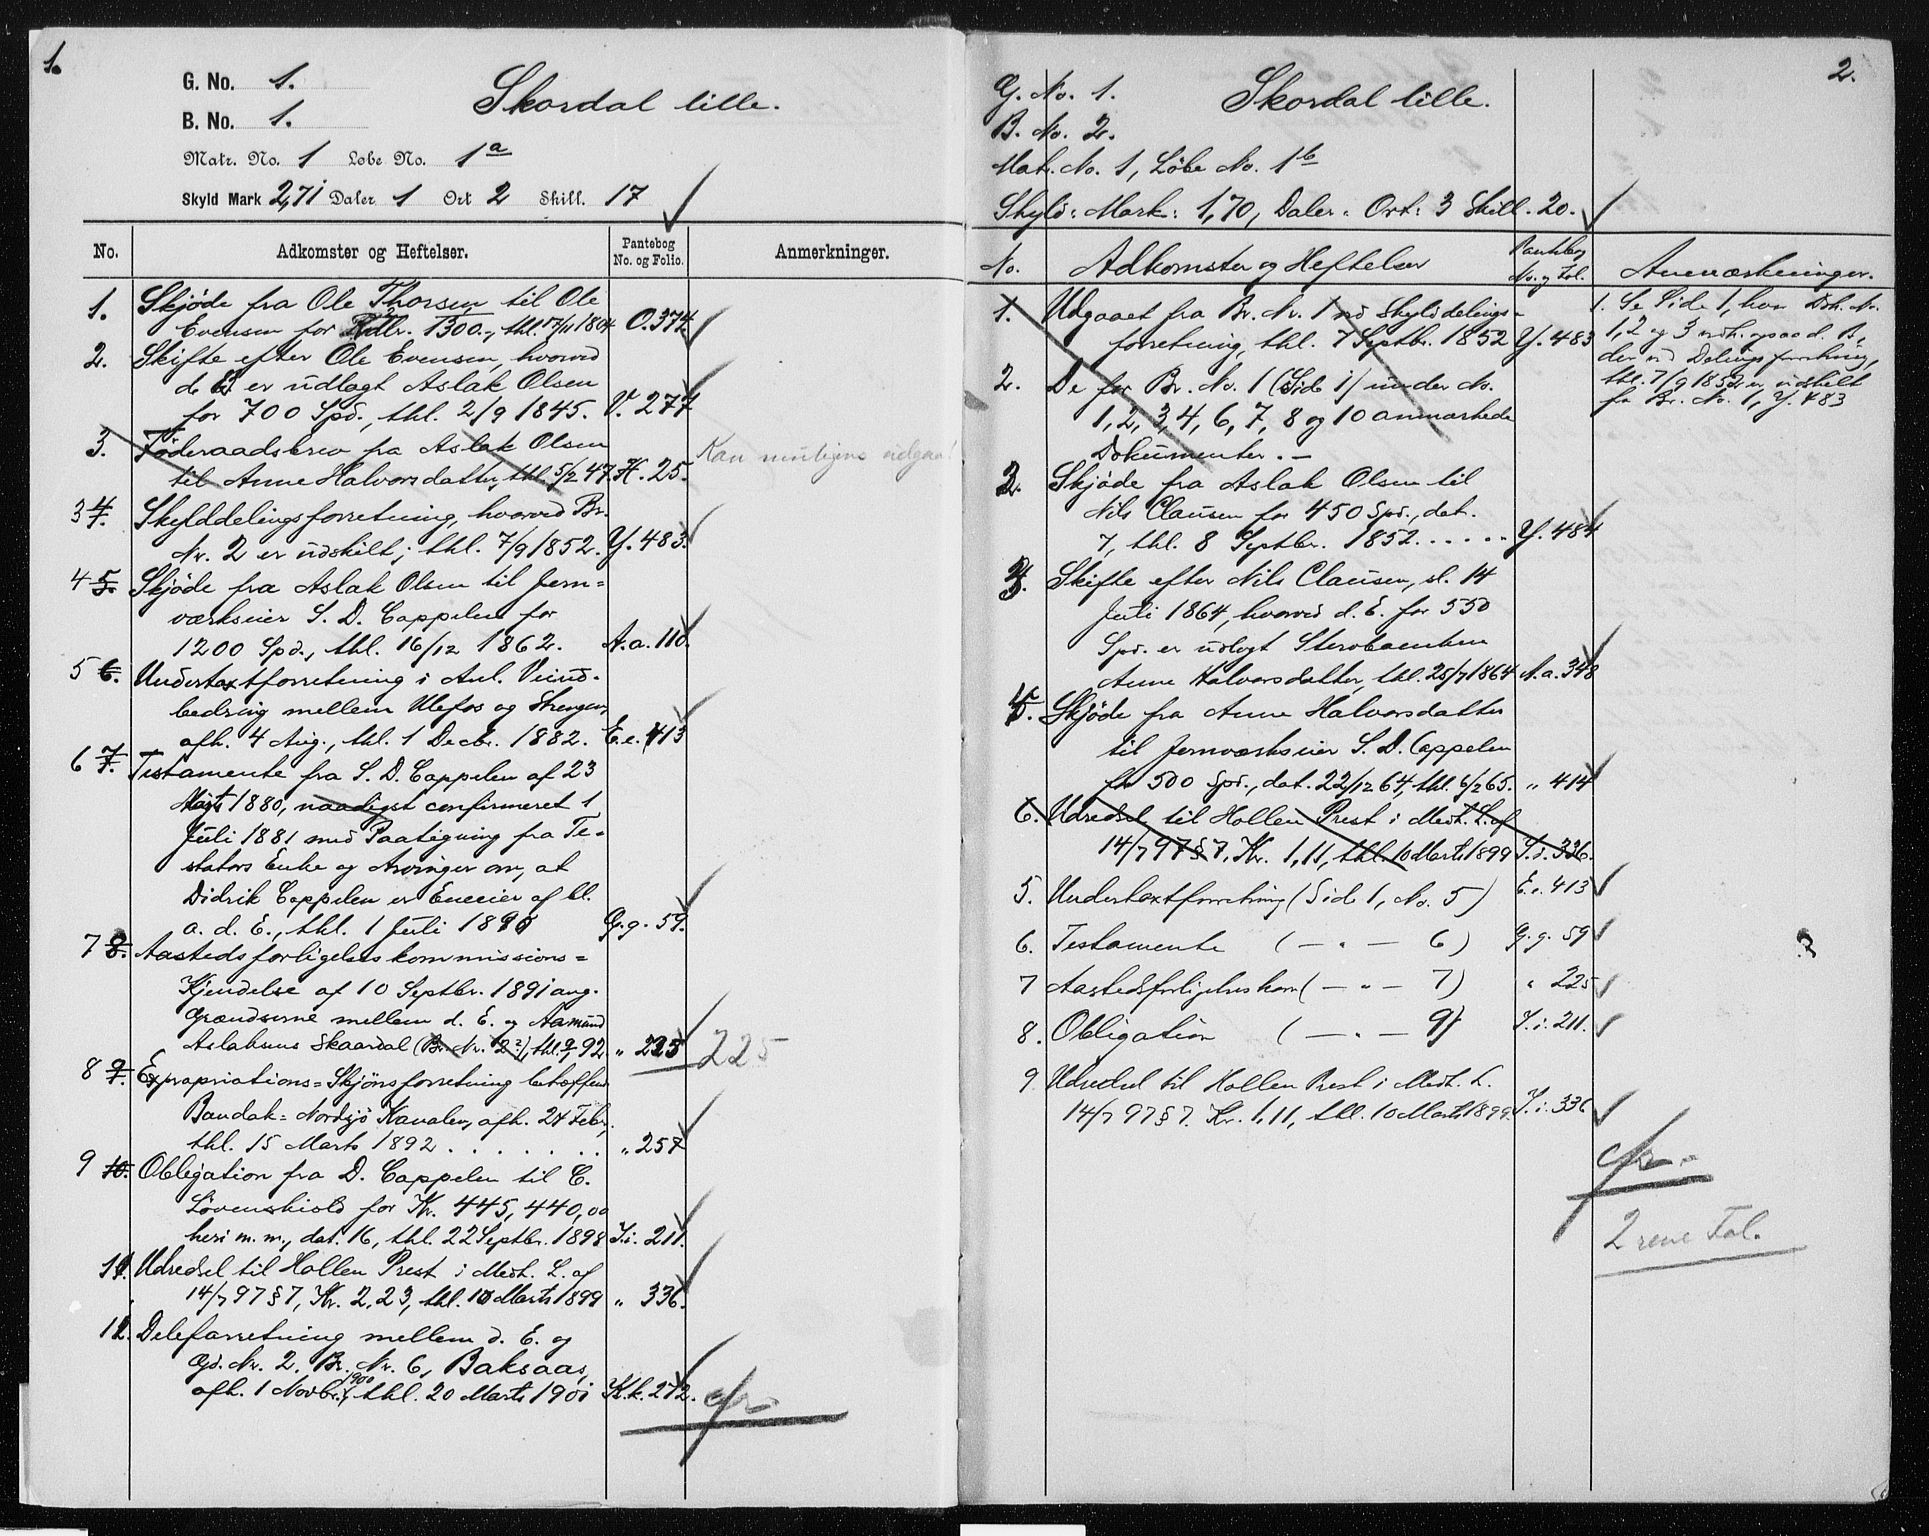 1.
G. No. 1.
Skordal lille.
B. No. 1.
Matr. No. 1 Løbe No. 1a
Skyld Mark 2,71 Daler 1 Ort 2 Skill. 17
No. Adkomster og Heftelser. Pantebog No. og Folio. Anmerkninger.
1. Skjøde fra Ole Thorsen til Ole
Evensen for Rdlr. 1300.-, thl. 17/11 1804 O. 374
2. Skifte efter Ole Evensen, hvorved
d. E. er udlagt Aslak Olsen
for 700 Spd., thl. 2/9 1845. V. 277
3. Føderaadsbrev fra Aslak Olsen
til Anne Halvorsdatter, thl. 5/2 47. H. 25. Kan muligens udgaa!
3 4. Skylddelingsforretning, hvorved Br.
Nr. 2 er udskilt; thl. 7/9 1852. Y. 483.
4 5. Skjøde fra Aslak Olsen til Jern=
værkseier S. D. Cappelen for
1200 Spd., thl. 16/12 1862. A.a. 110.
5 6. Undertaxtforretning i Anl.
bedring mellem Ulefos og Strengen,
afh. 4 Aug., thl. 1 Decbr. 1882. E.e. 413
6 7. Testamente fra S. D. Cappelen af 23
1880, naadigst confirmeret 1
Juli 1881 med Paategning fra Te-
stators Enke og Arvinger om, at
Didrik Cappelen er Eneeier af bl.
a. d. E., thl. 1 Juli 1890 G.g. 59.
7 8. Aastedsforligelseskommissions=
Kjendelse af 10 Septbr. 1891 ang.
Grændserne mellem d. E. og Aamund
Aslaksens Skaardal (Br. Nr. 2?), thl. 92 " 225 225
8 9. Expropriations=Skjønsforretning betræffende
Bandak=Nordsjø Kanalen, afh. 24 Febr.,
thl. 15 Marts 1892 . . . . . . . " 257
9 10. Obligation fra D. Cappelen til C.
Løvenskiold for Kr. 445,440,00
heri m. m., dat. 16, thl. 22 Septbr. 1898 I.i. 211.
11. Udredsel til Hollen Prest i Medh. L. af
14/7 97 § 7, Kr. 2,23, thl. 10 Marts 1899 " 336.
12. Deleforretning mellem d. E. og
Gd. Nr. 2. Br. Nr. 6, Baksaas,
afh. 1 Novbr. 1900, thl. 20 Marts 1901 K.k. 272.
cfr.
2.
G. No. 1.
Skordal lille.
B. No. 2.
Mat. No. 1, Løbe No. 1b
Skyld: Mark: 1,70, Daler - Ort: 3 Skill. 20.
No. Adkomster og Heftelser Pantebog No. og Fol. Anmærkninger.
1. Udgaaet fra Br. Nr. 1 ved Skylddelings-
forretning, thl. 7 Septbr. 1852 Y. 483
1. Se Side 1, hvor Dok. No.
1, 2 og 3 vedk. ogsaa d. B.,
der ved Delingsforretning,
thl. 7/9 1852 er udskilt
fra Br. No. 1, Y. 483
2. De for Br. No. 1 (Side 1) under No.
1, 2, 3, 4, 6, 7, 8 og 10 anmærkede
Dokumenter. -
2. Skjøde fra Aslak Olsen til
Nils Clausen for 450 Spd., dat.
7, thl. 8 Septbr. 1852. . . . . . Y. 484
3. Skifte efter Nils Clausen, sl. 14
Juli 1864, hvorved d. E. for 550
Spd. er udlagt Stervboenken
Anne Halvorsdatter, thl. 25/7 1864 A.a. 348
4. Skjøde fra Anne Halvorsdatter
til Jernværkseier S. D. Cappelen
for 500 Spd., dat. 22/12 64, thl. 6/2 65. " 414
6. Udredsel til Hollen Prest i Medh. L. af
14/7 97 § 7, Kr. 1,11, thl. 10 Marts 1899 I.i. 336.
5. Undertaxtforretning (Side 1, No. 5) E.e. 413
6. Testamente ( - " - 6) G.g. 59
7 Aastedsforligelseskom ( - " - 7) " 225
8. Obligation ( - " - 9) I.i. 211.
9. Udredsel til Hollen Prest i Medh. L.
14/7 97 § 7. Kr. 1,11, thl. 10 Marts 1899. I.i. 336
cfr.
2 rene Fol.
?